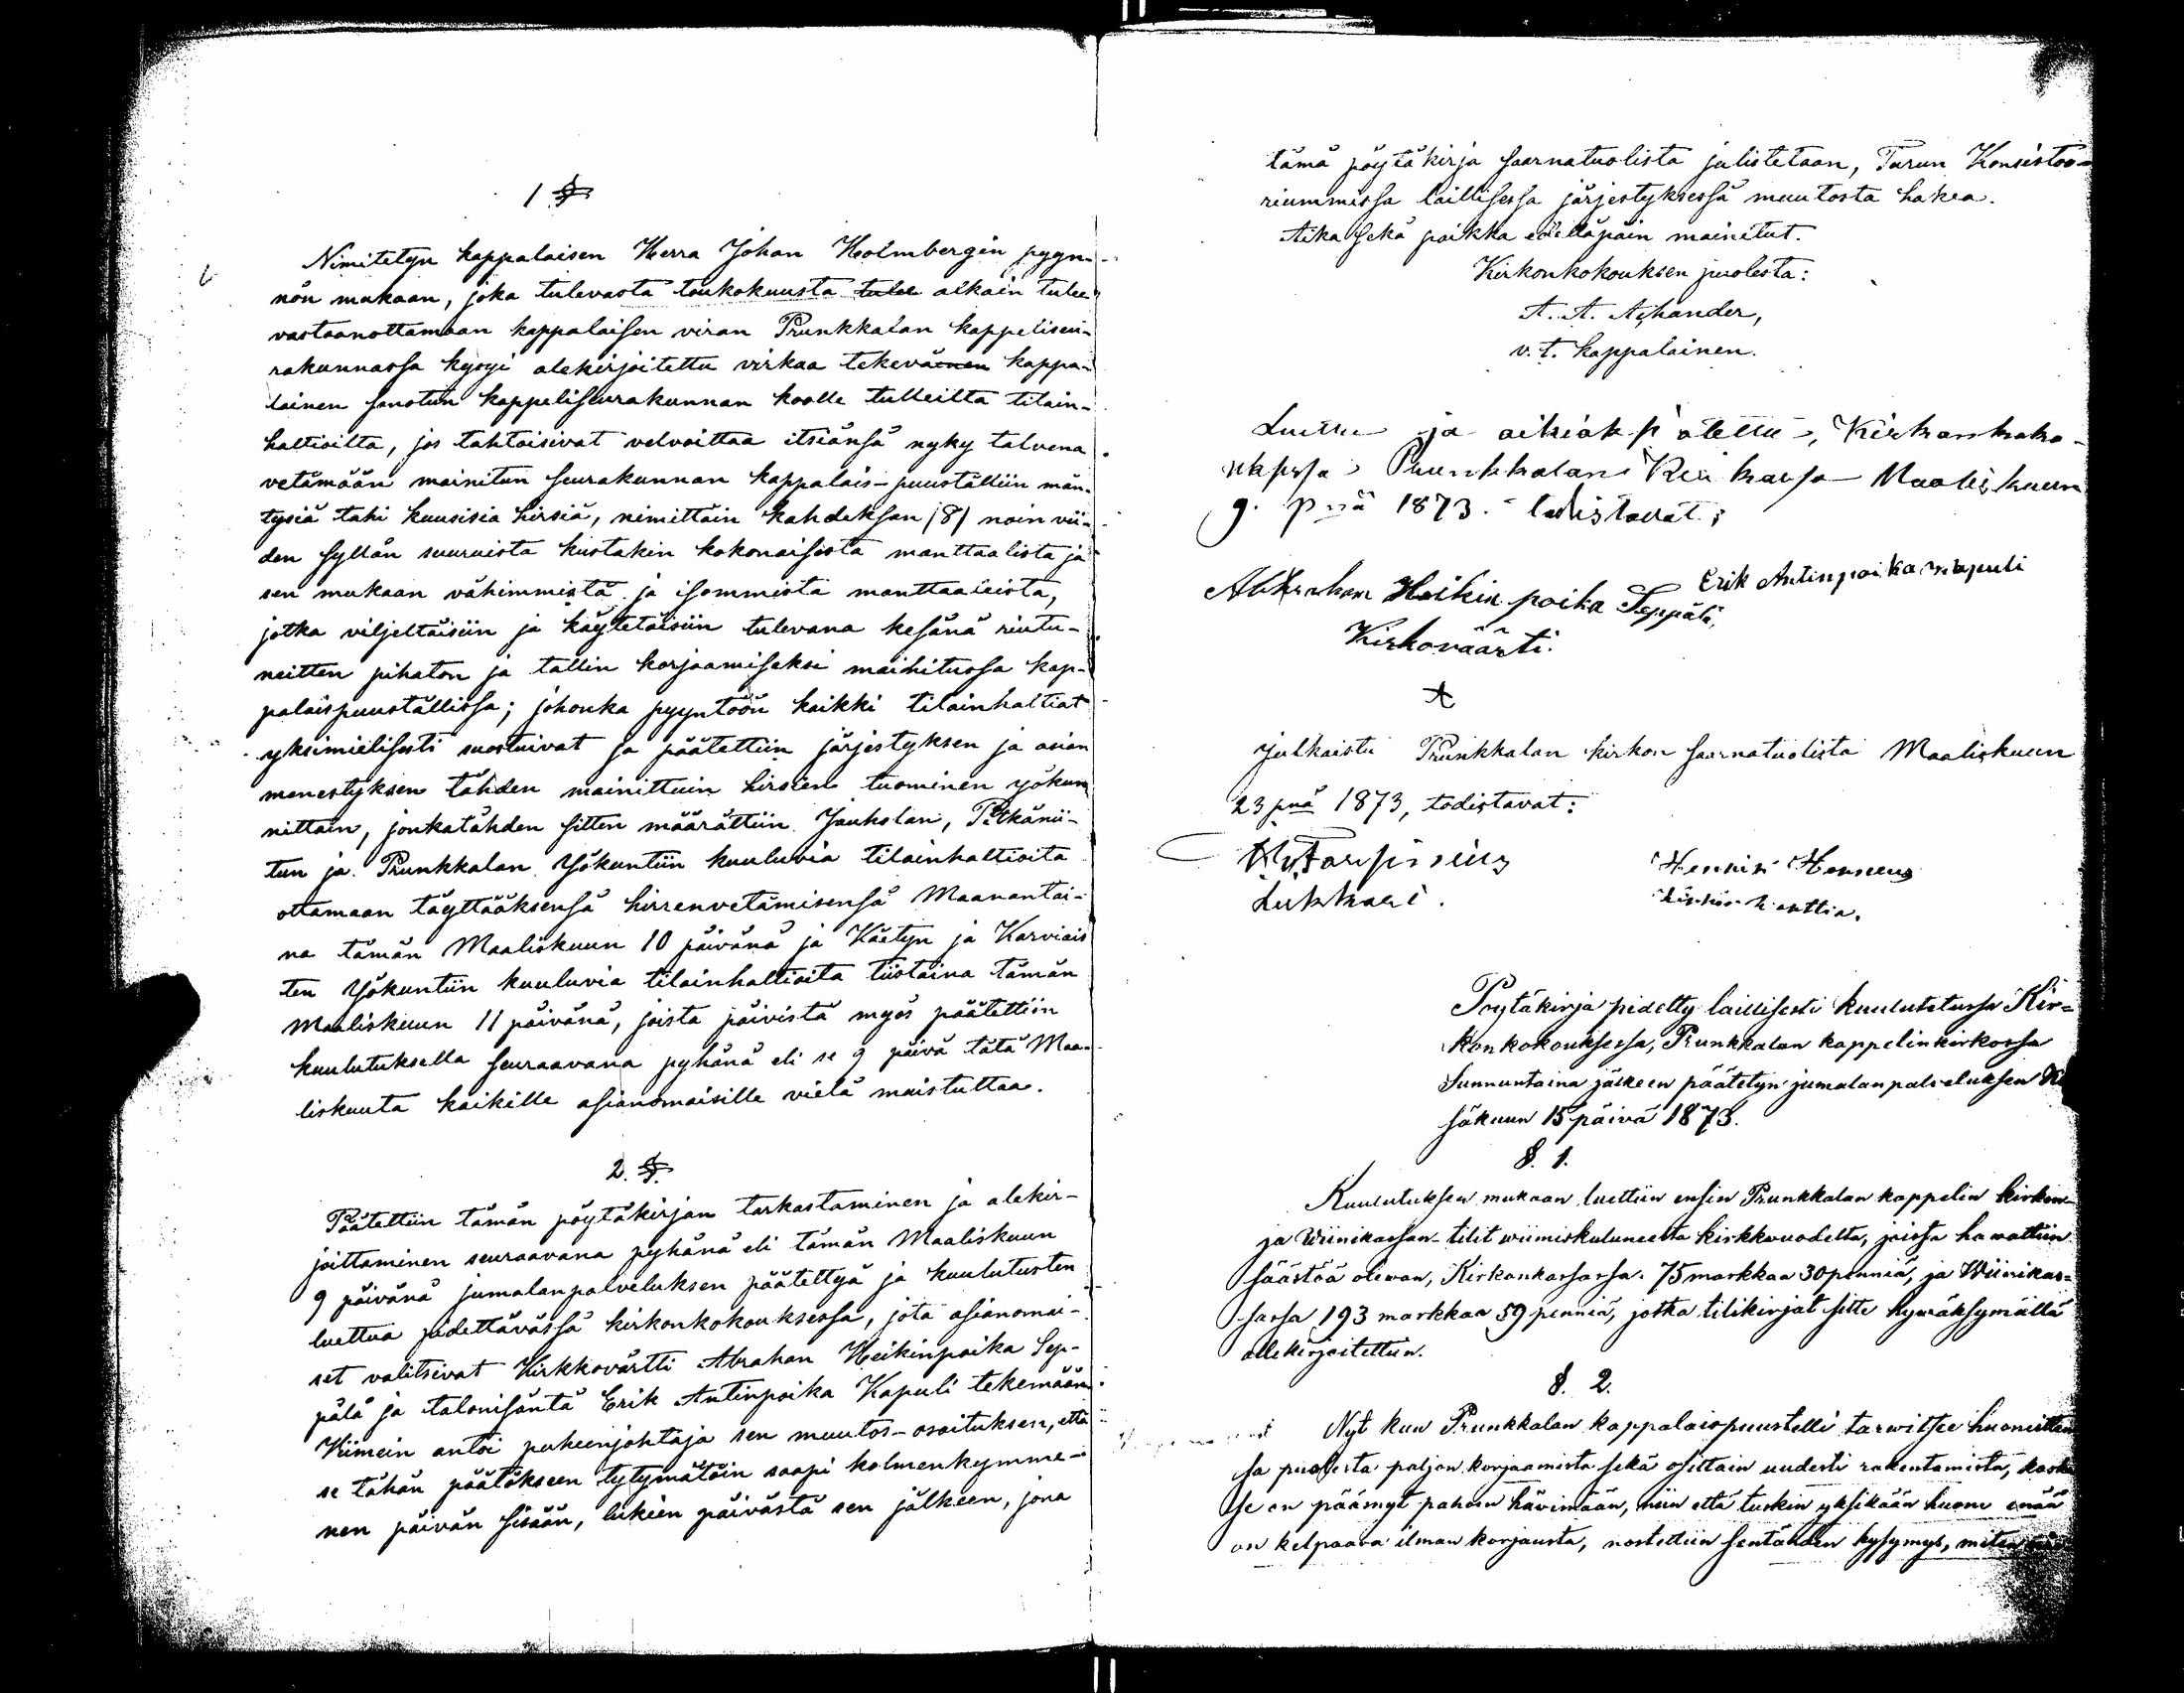 1 §
Nimitetyn kappalaisen Herra Johan Holmbergin pyyn-
nön mukaan, joka tulevasta toukokuusta tulee alkain tulee
vastaanottamaan kappalaisen viran Prunkkalan kappeliseu-
rakunnassa kysyi alekirjoitettu virkaa tekeväinen kappa-
lainen sanotun kappeliseurakunnan koolle tulleilta tilain-
haltioilta, jos tahtoisivat velvoittaa itsiänsä nyky talvena
vetämään mainitun seurakunnan kappalais-puuställiin män-
tysiä tahi kuusisia hirsiä, nimittäin kahdeksan (8) noin vii-
den syllän suuruista kustakin kokonaisesta manttaalista ja
sen mukaan vähimmistä ja isommista manttaaleista,
jotka viljeltäisiin ja käytetäisiin tulevana kesänä riutu-
neitten pihaton ja tallin korjaamiseksi mainitussa kap-
palaispuuställissa; johonka pyyntöön kaikki tilainhaltiat
yksimielisesti suostuivat ja päätettiin järjestyksen ja asian
menestyksen tähden mainittuin hirsien tuominen yökun
nittain, jonkatähden sitten määrättiin Jauholan, Pitkänii-
tun ja Prunkkalan Yökuntiin kuuluvia tilainhaltioita
ottamaan täyttääksensä hirrenvetämisensä Maanantai-
na tämän Maaliskuun 10 päivänä ja Käetyn ja Karviais
ten Yökuntiin kuuluvia tilainhaltioita tiistaina tämän
Maaliskuun 11 päivänä, joista päivistä myös päätettiin
kuulutuksella seuraavana pyhänä eli se 9 päivä tätä Maa-
liskuuta kaikille asianomaisille vielä muistuttaa.
2. §.
Päätettiin tämän pöytäkirjan tarkastaminen ja alekir-
joittaminen seuraavana pyhänä eli tämän Maaliskuun
9 päivänä jumalanpalveluksen päätettyä ja kuulutusten
luettua pidettävässä kirkonkokouksessa, jota asianomai-
set valitsivat Kirkkovärtti Abraham Heikinpoika Sep-
pälä ja talonisäntä Erik Antinpoika Kapuli tekemään.
Viimein antoi puheenjohtaja sen muutos-osoituksen, että
se tähän päätökseen tytymätöin saapi kolmenkymme-
nen päivän sisään, lukien päivästä sen jälkeen, jona
tämä pöytäkirja saarnatuolista julistetaan, Turun Konsistoo-
riummissa laillisessa järjestyksessä muutosta hakea.
Aika sekä paikka edelläpäin mainitut.
Kirkonkokouksen puolesta:
A. A. Achander,
v. t. kappalainen.
Luettu ja oikiaksi atettu, Kirkonkoko-
uksessa Prunkkalan Kirkossa Maaliskuun
9. pnä 1873. todistavat;
Erik Antinpoika Kapuli
Abraham Heikin poika Seppälä,
Kirkoväärti.
Julkaistu Prunkkalan kirkon saarnatuolista Maaliskuun
23 pnä 1873, todistavat:
Lukkari.
Pöytäkirja pidetty laillisesti kuulutetussa Kir-
konkokouksessa, Prunkkalan kappelinkirkossa
Sunnuntaina jälkeen päätetyn jumalanpalveluksen Ke
säkuun 15 päivä 1873.
§. 1.
Kuulutuksen mukaan luettiin ensin Prunkkalan kappelin kirkon-
ja Wiinikassan-tilit wiimiskuluneelta kirkkovuodelta, joissa hawattiin
säästöä olewan, Kirkonkassassa 75 markkaa 30 penniä, ja Wiinikas-
sassa 193 markkaa 59 penniä, jotka tilikirjat sitte hywäksymällä
allekirjoitettiin.
§. 2.
Nyt kun Prunkkalan kappalaispuustelli tarwitsee huoneitten
sa puolesta paljon korjaamista sekä osittain uudesti rakentamista, koska
se on päässyt pahoin häwimään, niin että tuskin yksikään huone enää
on kelpaava ilman korjausta, nostettiin sentähden kysymys, miten